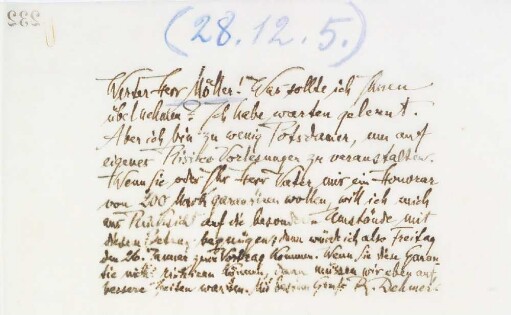 232
(28.12.5.)
Werter Herr Möller! Was sollte ich Ihnen
übel nehmen? Ich habe warten gelernt.
Aber ich bin zu wenig Potsdamer, um auf
eigenes Risiko Vorlesungen zu veranstalten.
Wenn Sie oder Ihr Herr Vater mir ein Honorar
von 200 Mark garantieren wollen, will ich mich
aus Rücksicht auf die besonderen Umstände mit
diesem begnügen; dann würde ich also Freitag
den 26. Januar zum Vortrag kommen. Wenn Sie den Garan-
tie nicht riskieren können, dann müssen wir eben auf
bessere Zeiten warten. Mit bestem Gruß R. Dehmel.